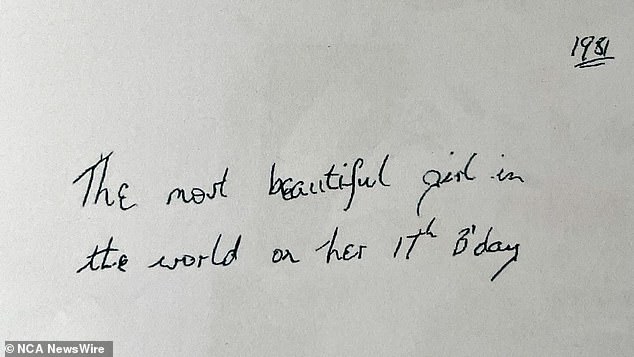 1981
The most beautiful girl in
the world on her 17th B'day
© NCA NewsWire